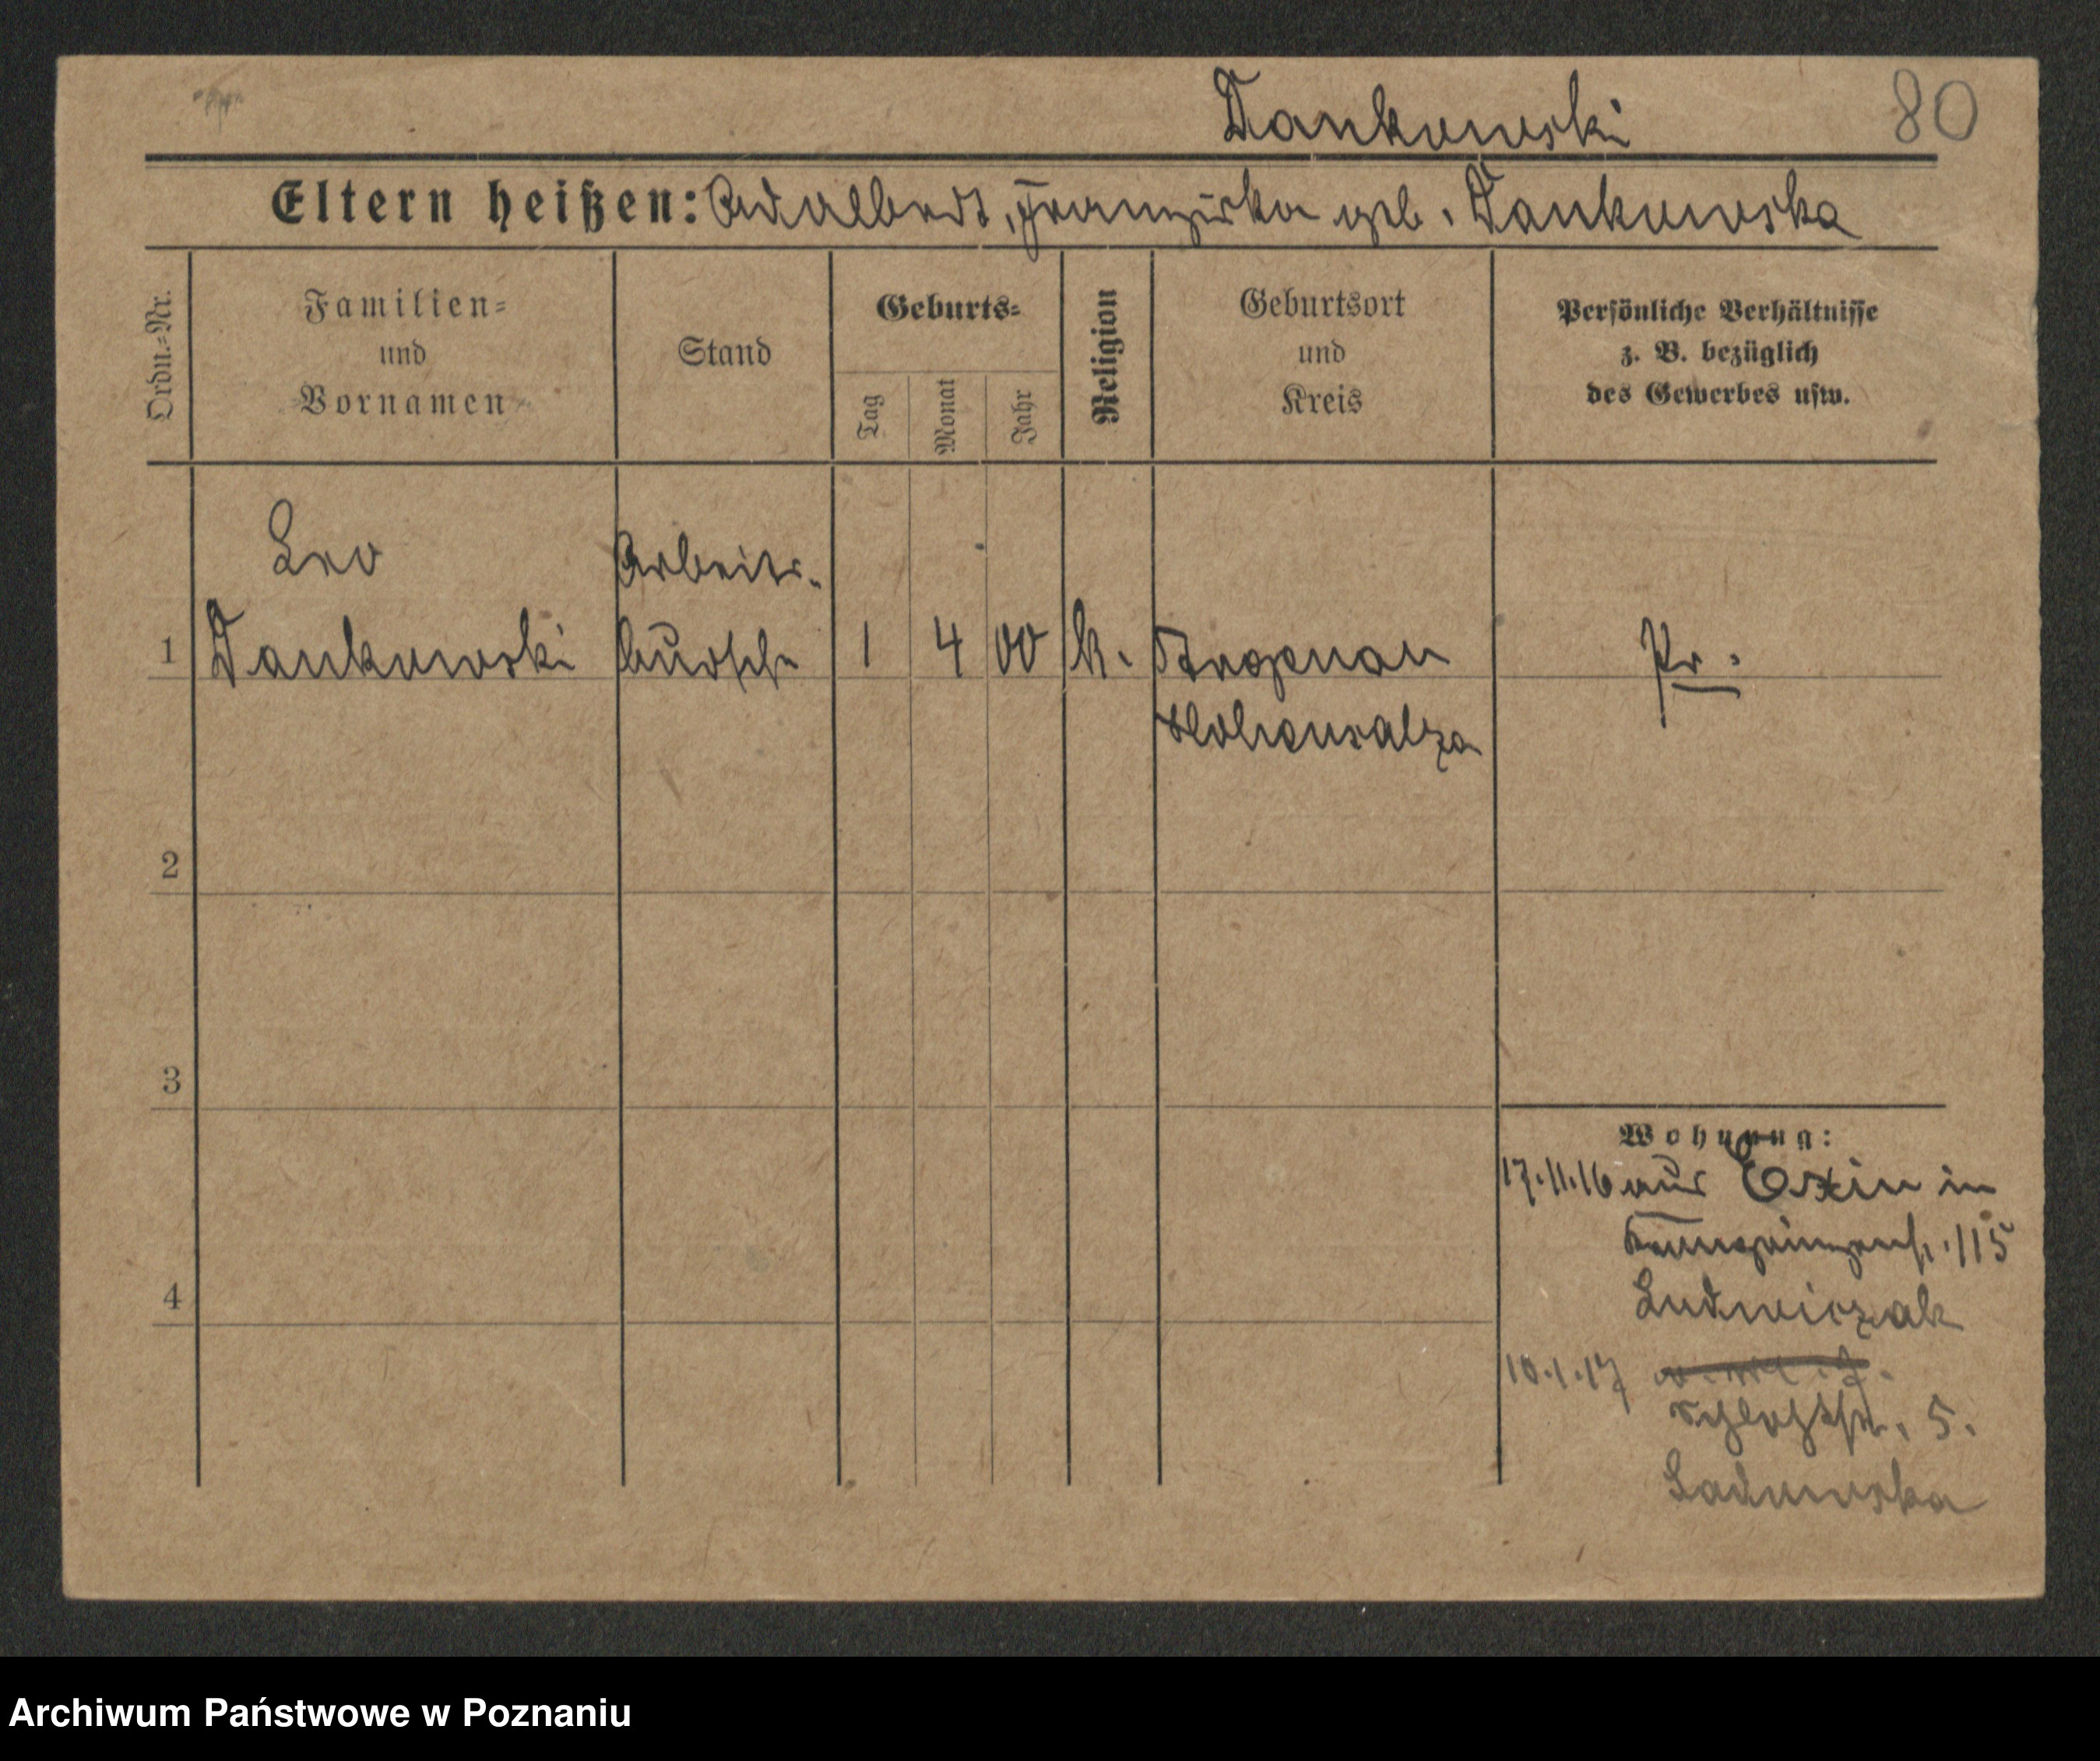 Dankowski 80
Eltern heißen: Adalbert, Franziska geb. Dankowska
Ordn.-Nr.
Familien-
und
Vornamen
Stand
Geburts-
Tag
Monat
Jahr
Religion
Geburtsort
und
Kreis
Persönliche Verhältnisse
z. B. bezüglich
des Gewerbes usw.
Leo Arbeits-
1 Dankowski bursche 1 4 00 k. Pr.
Hohensalza
2
3
4
Wohnung:
17.11.16 aus Exin in
115
Ludwiczak
10.1.17
Schloßstr. 5.
Sadowska
Archiwum Państwowe w Poznaniu